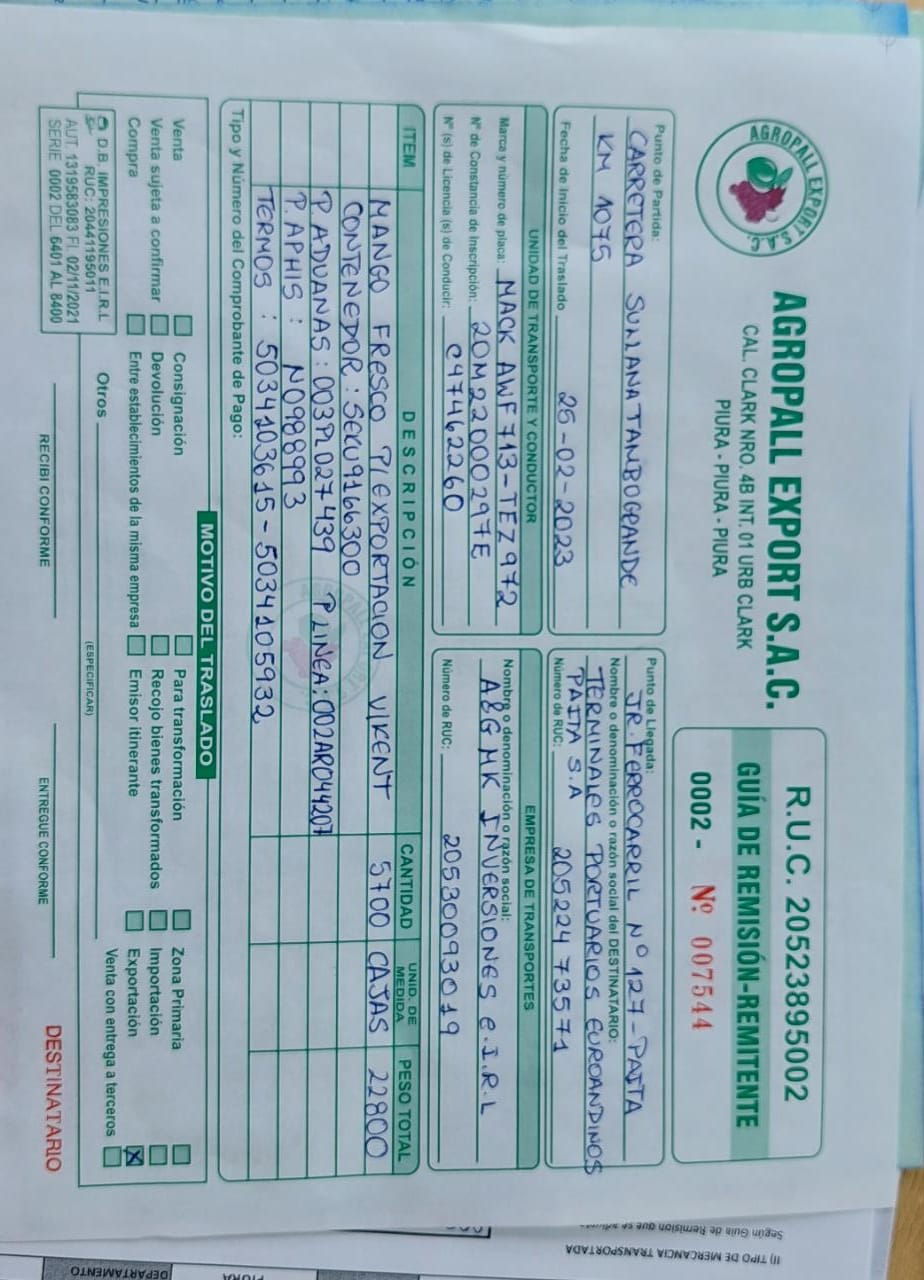 AGROPALL EXPORT S.A.C.
AGROPALL EXPORT S.A.C.
CAL. CLARK NRO. 4B INT. 01 URB CLARK
PIURA - PIURA - PIURA
R.U.C. 20523895002
GUÍA DE REMISIÓN-REMITENTE
0002 - Nº 007544
Punto de Partida:
CARRETERA SULLANA TANBOGRANDE
KM 1075
Fecha de Inicio del Traslado 25-02-2023
Punto de Llegada:
JR. FERROCARRIL Nº 127-PAITA
Nombre o denominación o razón social del DESTINATARIO:
TERMINALES PORTUARIOS EUROANDINOS
PAITA S.A
Número de RUC: 20522473571
UNIDAD DE TRANSPORTE Y CONDUCTOR
Marca y número de placa: MACK AWF713-TEZ972
Nº de Constancia de Inscripción: 20M22000297E
Nº (s) de Licencia (s) de Conducir: C47462260
EMPRESA DE TRANSPORTES
Nombre o denominación o razón social:
A&G MK INVERSIONES E.I.R.L
Número de RUC: 20530093019
ITEM DESCRIPCIÓN CANTIDAD UNID. DE MEDIDA PESO TOTAL
MANGO FRESCO P/EXPORTACION V/KENT 5700 CAJAS 22800
CONTENEDOR: SEKU9166300
P. ADUANAS: 003PL027439 P LINEA: 002AR044207
P. APHIS: N0988993
TERMOS: 5034103615-5034105932
Tipo y Número del Comprobante de Pago:
MOTIVO DEL TRASLADO
Venta Consignación Para transformación Zona Primaria
Venta sujeta a confirmar Devolución Recojo bienes transformados Importación
Compra Entre establecimientos de la misma empresa Emisor itinerante Exportación X
Venta con entrega a terceros
Otros
(ESPECIFICAR)
D.B. IMPRESIONES E.I.R.L
RUC: 20441195011
AUT. 1319583083 FI. 02/11/2021
SERIE 0002 DEL 6401 AL 8400
RECIBI CONFORME
ENTREGUE CONFORME
DESTINATARIO
Según Guia de Remision que se
II) TIPO DE MERCANCIA TRANSPORTADA